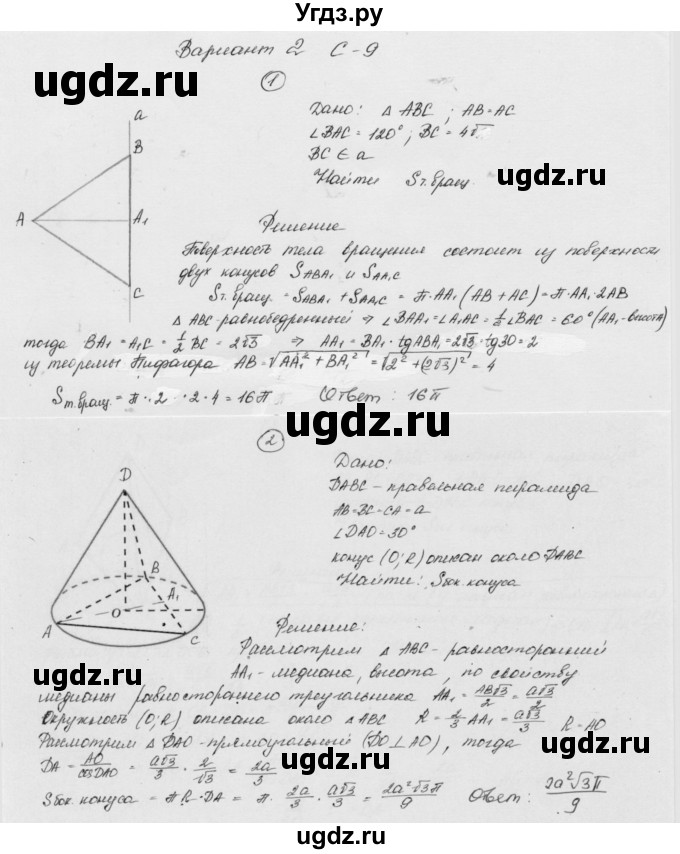 Угдз.ру
Вариант 2 С-9
gdz.ru
gdz.ru
1
a
B
A
A₁
C
Дано: △ ABC ; AB=AC
∠BAC = 120° ; BC = 4√
BC ∈ a
Найти Sт.вращ.
Решение
Поверхность тела вращения состоит из поверхности
двух конусов SABA₁ и SAA₁C
Sт.вращ. = SABA₁ + SAA₁C = π·AA₁(AB + AC) = π·AA₁·2AB
△ ABC-равнобедренный ⇒ ∠BAA₁=∠A₁AC = ½∠BAC = 60° (AA₁-высота)
тогда BA₁ = A₁C = ½ BC = 2√3 ⇒ AA₁ = BA₁ · tgABA₁ = 2√3 · tg30 = 2
из теоремы Пифагора AB = √AA₁² + BA₁² = √2² + (2√3)² = 4
Sт.вращ. = π · 2 · 2 · 4 = 16π Ответ: 16π
gdz.ru
gdz.ru
2
D
B
O
A₁
A
C
Дано:
DABC - правильная пирамида
AB=BC=CA=a
∠DAO=30°
конус (O;R) описан около DABC
Найти: Sбок. конуса
gdz.ru
gdz.ru
Решение:
Рассмотрим △ ABC - равносторонний
AA₁ - медиана, высота, по свойству
медианы равностороннего треугольника AA₁ = AB√3/2 = a√3/2
Окружность (O;R) описана около △ABC R = ⅔ AA₁ = a√3/3 R=AO
Рассмотрим △ DAO - прямоугольный (DO⊥AO), тогда
DA = AO/cosDAO = a√3/3 · 2/√3 = 2a/3
Sбок. конуса = πR·DA = π · 2a/3 · a√3/3 = 2a²√3π/9 Ответ: 2a²√3π/9
gdz.ru
gdz.ru